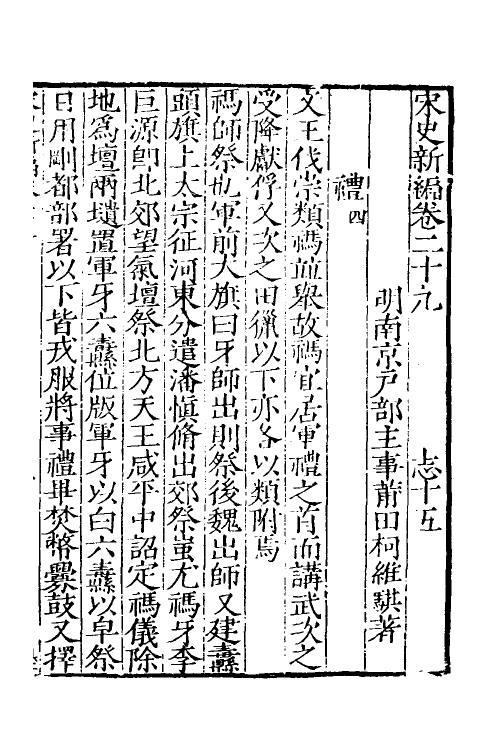 宋史新編卷二十九　志十五
明南京戶部主事莆田柯維騏著
禮四
文王伐崇類禡並舉故禡宜居軍禮之首而講武次之
受降獻俘又次之田獵以下亦各以類附焉
禡師祭也軍前大旗曰牙師出則祭後魏出師又建纛
頭旗上太宗征河東分遣潘愼脩出郊祭蚩尤禡牙李
巨源卽北郊望氣壇祭北方天王咸平中詔定禡儀除
地爲壇兩壝置軍牙六纛位版軍牙以白六纛以皁祭
日用剛都部署以下皆戎服將事禮畢焚幣釁鼓又擇